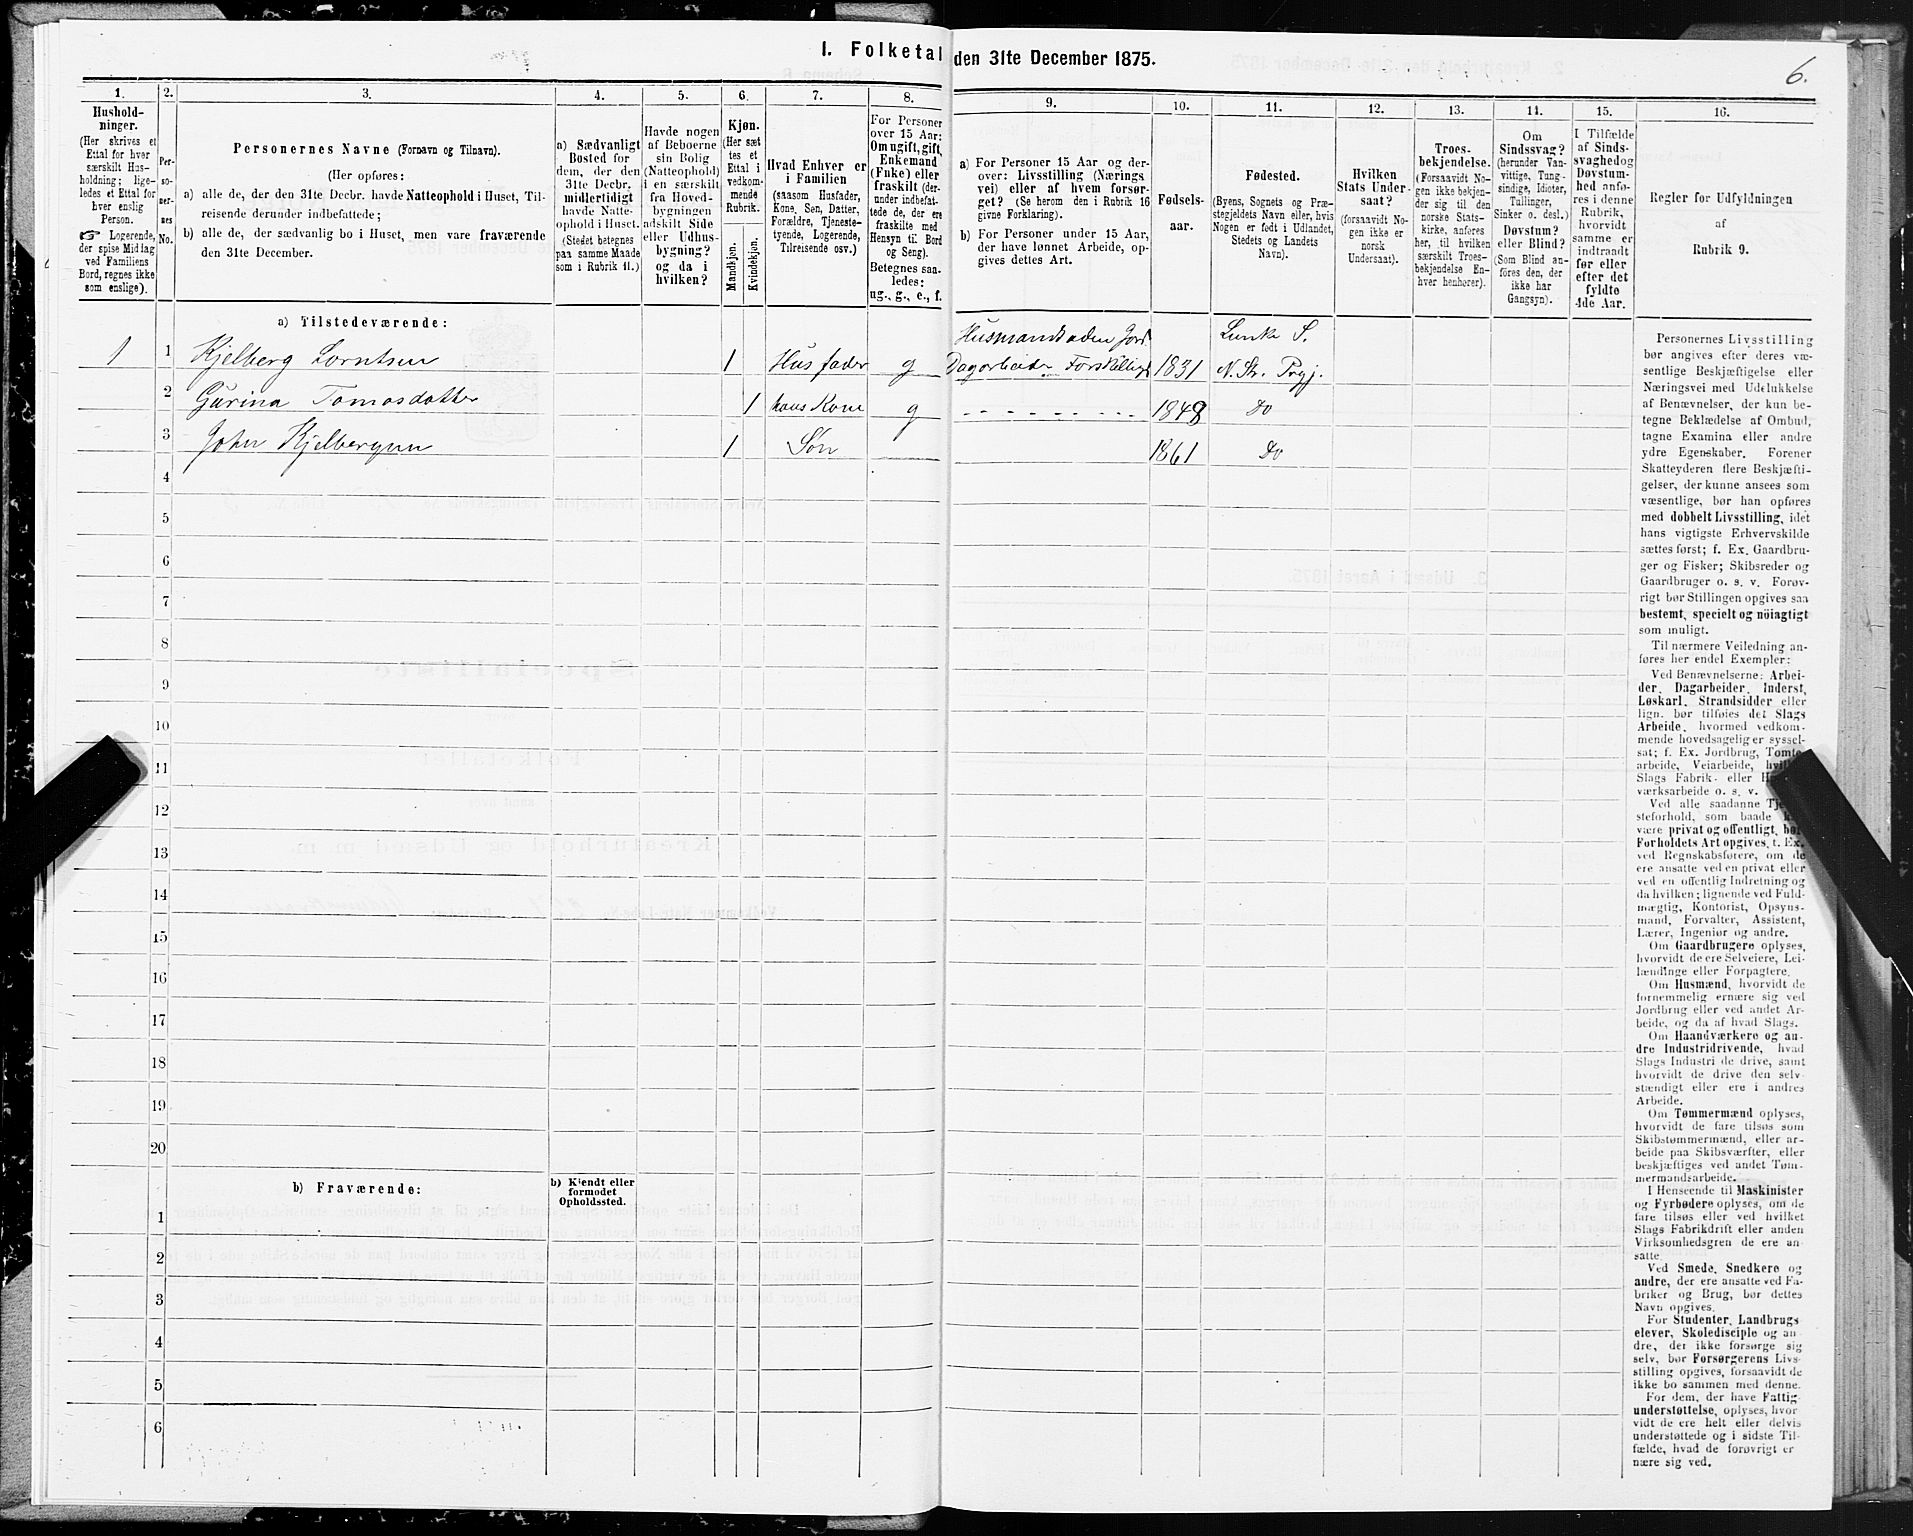 I. Folketal den 31te December 1875.
6.
1.
Hushold-
ninger.
(Her skrives et
Ettal for hver
særskilt Hus-
holdning; lige-
ledes et Ettal for
hver enslig
Person.
Logerende,
der spise Middag
ved Familiens
Bord, regnes ikke
som enslige).
2.
Per-
so-
ner-
nes
No.
3.
Personernes Navne (Fornavn og Tilnavn).
(Her opføres:
a) alle de, der den 31te Decbr. havde Natteophold i Huset, Til-
reisende derunder indbefattede;
b) alle de, der sædvanlig bo i Huset, men vare fraværende
den 31te December.
4.
a) Sædvanligt
Bosted for
dem, der den
31te Decbr.
midlertidigt
havde Natte-
ophold i Huset.
(Stedet betegnes
paa samme Maade
som i Rubrik 11.)
5.
Havde nogen
af Beboerne
sin Bolig
(Natteophold)
i en særskilt
fra Hoved-
bygningen
adskilt Side
eller Udhus-
bygning?
og da i
hvilken?
6.
Kjøn.
(Her sæt
tes et
Ettal i
vedkom-
mende
Rubrik.
Mandkjøn.
Kvindekjøn.
7.
Hvad Enhver er
i Familien
(saasom Husfader,
Kone, Søn, Datter,
Forældre, Tjeneste-
tyende, Logerende,
Tilreisende osv.)
8.
For Personer
over 15 Aar:
Om ugift, gift,
Enkemand
(Enke) eller
fraskilt (der-
under indbefat-
tede de, der ere
fraskilte med
Hensyn til Bord
og Seng).
Betegnes saa-
ledes:
ug., g., e., f.
9.
a) For Personer 15 Aar og der-
over: Livsstilling (Nærings
vei) eller af hvem forsør-
get? (Se herom den i Rubrik 16
givne Forklaring).
b) For Personer under 15 Aar,
der have lønnet Arbeide, op-
gives dettes Art.
10.
Fødsels-
aar.
11.
Fødested.
(Byens, Sognets og Præ-
stegjeldets Navn eller, hvis
Nogen er født i Udlandet,
Stedets og Landets
Navn).
12.
Hvilken
Stats Under-
saat?
(forsaavidt No-
gen ikke er
norsk
Undersaat).
13.
Troes-
bekjendelse.
(Forsaavidt No-
gen ikke bekjen-
der sig til den
norske Stats-
kirke, anføres
her, til hvilken
særskilt Troes-
bekjendelse En-
hver henhører).
14.
Om
Sindssvag?
(herunder Van-
vittige, Tung-
sindige, Idioter,
Tullinger,
Sinker o. desl.)
Døvstum?
eller Blind?
(Som Blind an-
føres den, der
ikke har
Gangsyn).
15.
I Tilfælde
af Sinds-
svaghed og
Døvstum-
hed anfø-
res i denne
Rubrik,
hvorvidt
samme er
indtraadt
før eller
efter det
fyldte
4de Aar.
16.
Regler for Udfyldningen
af
Rubrik 9.
a) Tilstedeværende:
1 1 Kjelberg Lorntsen 1 Husfader g Husmand uden Jord Dagarbeide 1831
2 Gurina Tomasdatter 1 hans Kone g 1848 Do
3 John Kjelbergsen 1 Søn 1861 Do
4
5
6
7
8
9
10
11
12
13
14
15
16
17
18
19
20
b) Fraværende:
b) Kjendt eller
formodet
Opholdssted.
1
2
3
4
5
6
Personernes Livsstilling
bør angives efter deres væ-
sentlige Beskjæftigelse eller
Næringsvei med Udelukkelse
af Benævnelser, der kun be-
tegne Beklædelse af Ombud,
tagne Examina eller andre
ydre Egenskaber. Forener
Skatteyderen flere Beskjæfti-
gelser, der kunne ansees som
væsentlige, bør han opføres
med dobbelt Livsstilling, idet
hans vigtigste Erhvervskilde
sættes først; f. Ex. Gaardbru-
ger og Fisker; Skibsreder og
Gaardbruger o. s. v. Forøv-
rigt bør Stillingen opgives saa
bestemt, specielt og nöiagtigt
som muligt.
Til nærmere Veiledning an-
føres her endel Exempler:
Ved Benævnelserne: Arbei-
der, Dagarbeider, Inderst,
Løskarl, Strandsidder eller
lign. bør tilføies det Slags
Arbeide, hvormed vedkom-
mende hovedsagelig er syssel-
sat; f. Ex. Jordbrug, Tomte-
arbeide, Veiarbeide, hvilket
Slags Fabrik- eller
værksarbeide o. s. v.
Ved alle saadanne
steforhold, som baade
være privat og offentligt, bør
Forholdets Art opgives, f. Ex.
ved Regnskabsførere, om de
ere ansatte ved en privat eller
ved en offentlig Indretning og
da hvilken; lignende ved Fuld-
mægtig, Kontorist, Opsyns-
mand, Forvalter, Assistent,
Lærer, Ingeniør og andre.
Om Gaardbrugere oplyses,
hvorvidt de ere Selveiere, Lei-
lændinge eller Forpagtere.
Om Husmænd, hvorvidt de
fornemmelig ernære sig ved
Jordbrug eller ved andet Ar-
beide, og da af hvad Slags.
Om Haandværkere og an-
dre Industridrivende, hvad
Slags Industri de drive, samt
hvorvidt de drive den selv-
stændigt eller ere i andres
Arbeide.
Om Tømmermænd oplyses,
hvorvidt de fare tilsøs som
Skibstømmermænd, eller ar-
beide paa Skibsværfter, eller
beskjæftiges ved andet Tøm-
mermandsarbeide.
I Henseende til Maskinister
og Fyrbødere oplyses, om de
fare tilsøs eller ved hvilket
Slags Fabrikdrift eller anden
Virksomhedsgren de ere an-
satte.
Ved Smede, Snedkere og
andre, der ere ansatte ved Fa-
briker og Brug, bør dettes
Navn opgives.
For Studenter, Landbrugs
elever, Skoledisciple og an-
dre, der ikke forsørge sig
selv, bør Forsørgerens Livs-
stilling opgives, forsaavidt de
ikke bo sammen med denne.
For dem, der have Fattig-
understøttelse, oplyses, hvor-
vidt de ere helt eller delvis
understøttede og i sidste Til-
fælde, hvad de forøvrigt er
nære sig ved.